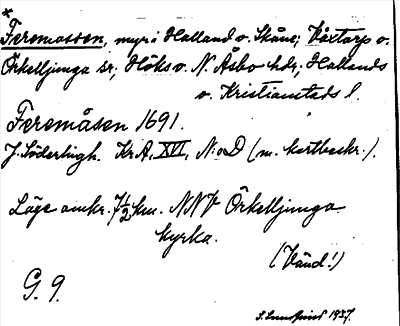 *
Feremossen, myr i Halland o. Skåne; Våxtorp o.
Örkelljunga sr; Höks o. N. Åsbo hdr; Hallands
o. Kristianstads l.
Feremåsen 1691.
J. Söderlingh. KrA, XVI, N:o D (m. kartbeskr.).
Läge omkr. 7½ km. NNV Örkelljunga
kyrka.
(Vänd!)
G. 9.
1937.